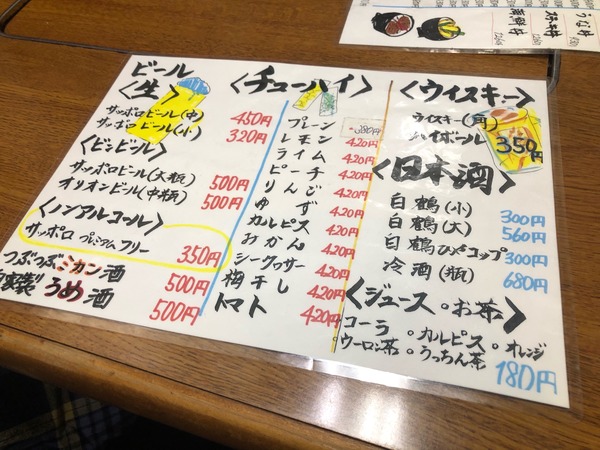 ビール
〈生〉
サッポロビール(中) 450円
サッポロビール(小) 320円
〈ビンビール〉
サッポロビール(大瓶) 500円
オリオンビール(中瓶) 500円
〈ノンアルコール〉
サッポロ プレミアムフリー 350円
つぶつぶミカン酒 500円
自家製うめ酒 500円
〈チューハイ〉
プレーン 380円
レモン 420円
ライム 420円
ピーチ 420円
りんご 420円
ゆず 420円
カルピス 420円
みかん 420円
シークヮサー 420円
梅干し 420円
トマト 420円
〈ウイスキー〉
ウイスキー(角)
ハイボール 350円
〈日本酒〉
白鶴(小) 300円
白鶴(大) 560円
白鶴ひやコップ 300円
冷酒(瓶) 680円
〈ジュース・お茶〉
コーラ・カルピス・オレンジ
ウーロン茶・うっちん茶
180円
海鮮丼